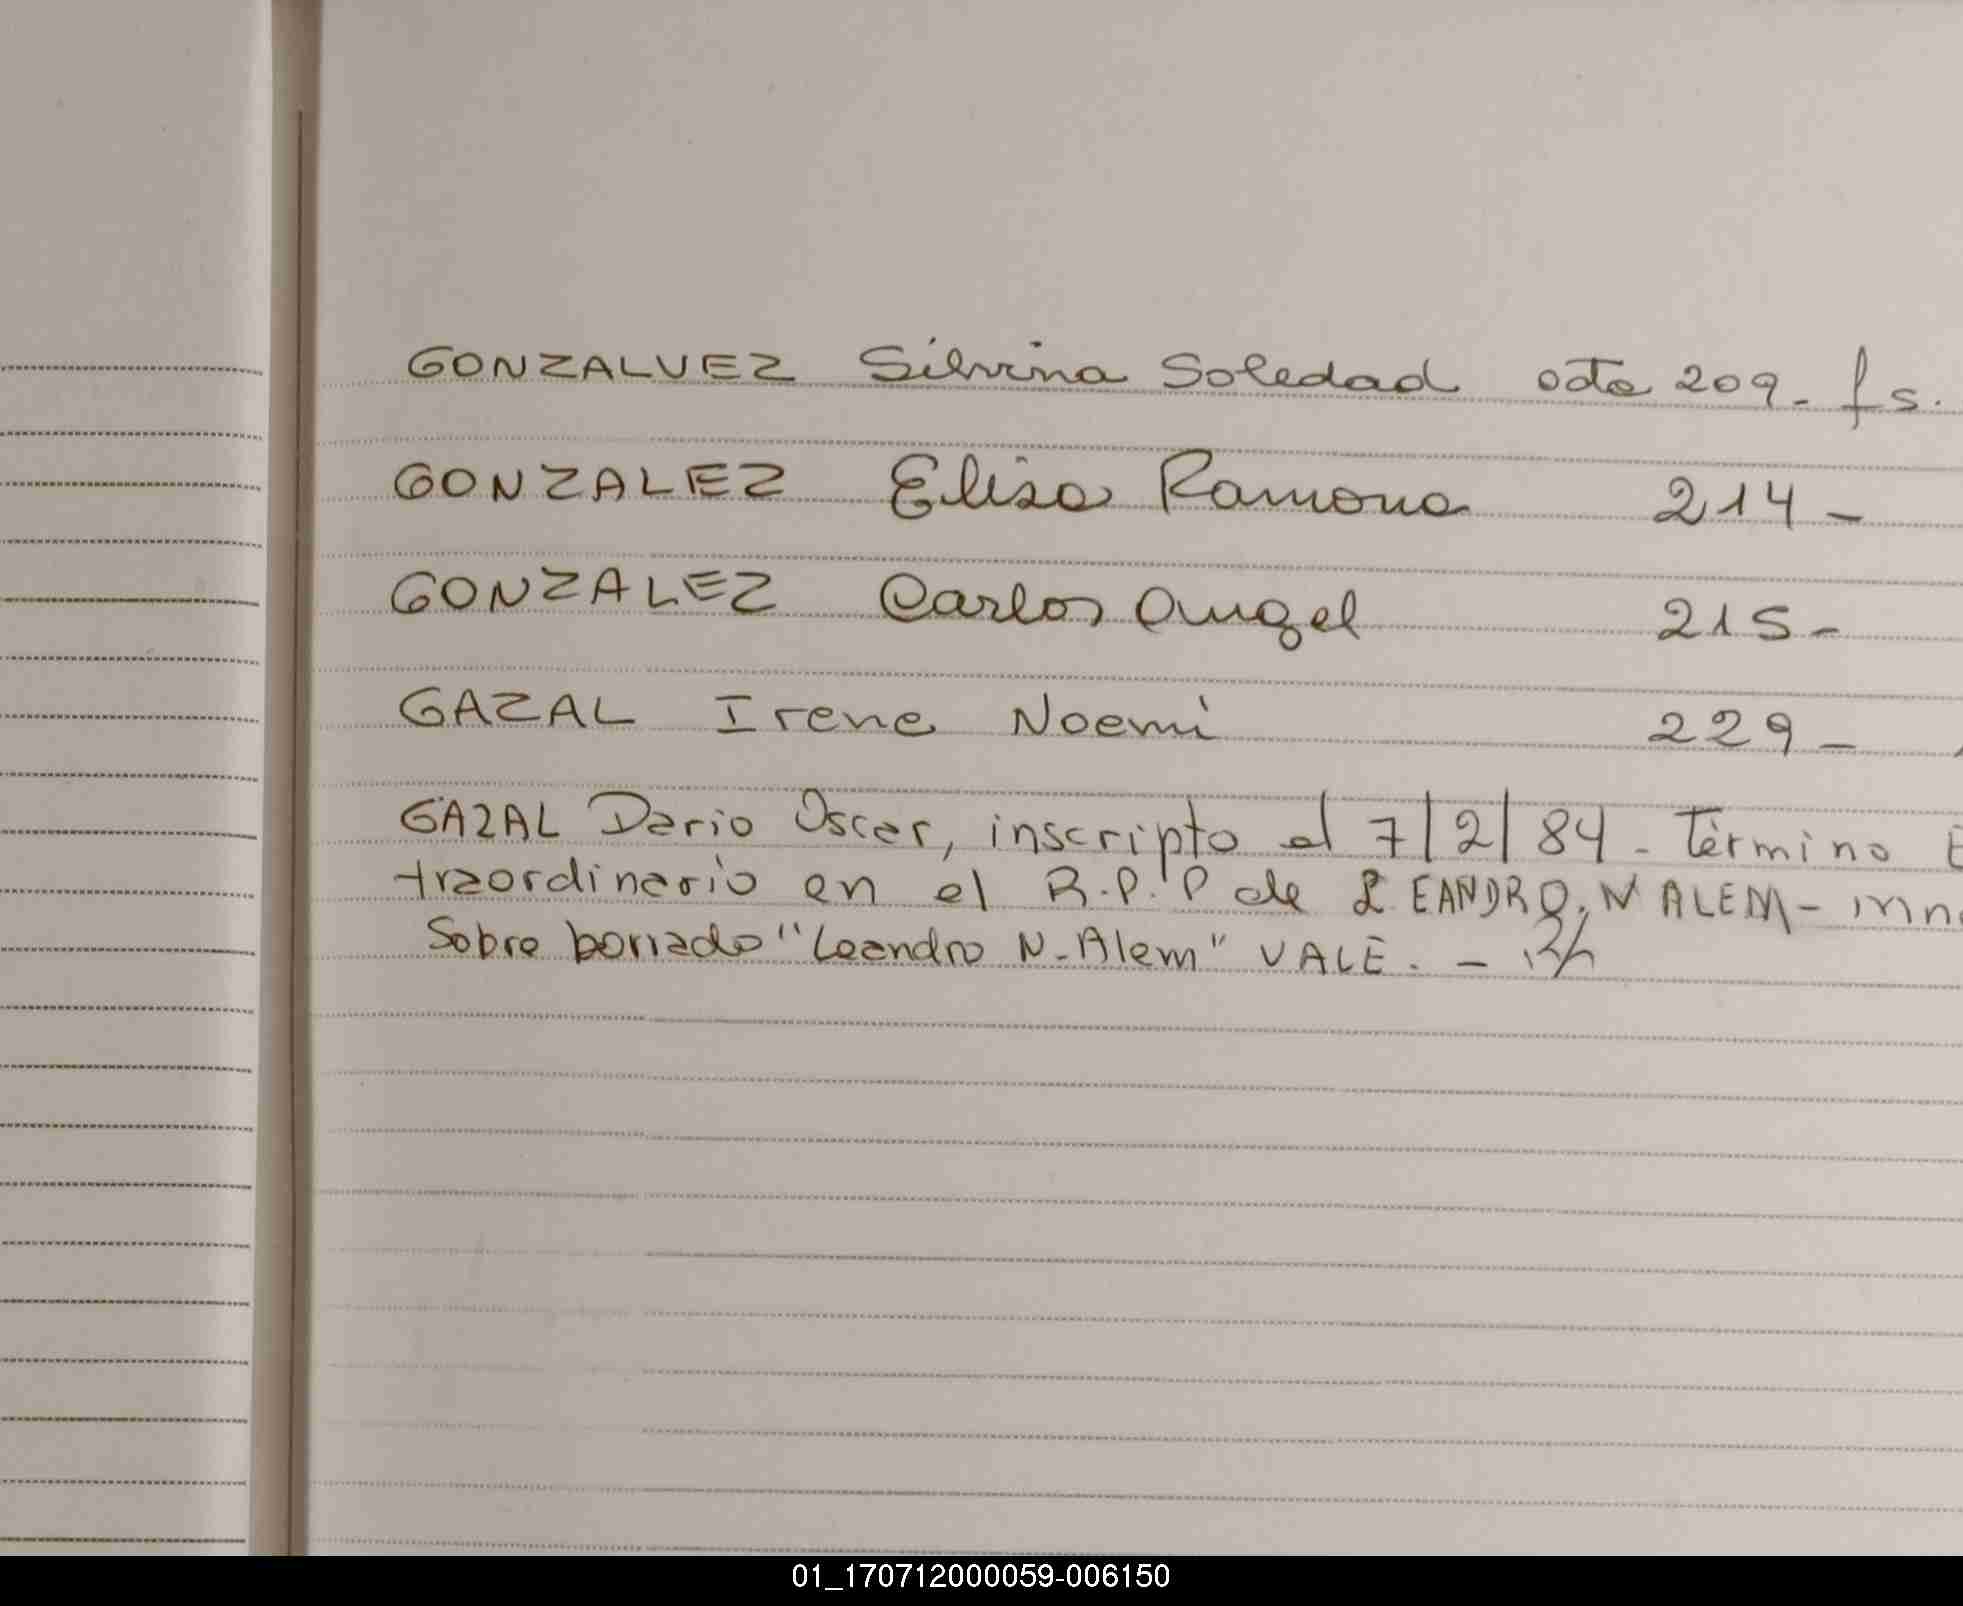 GONZALVEZ Silvina Soledad acta 209- fs.
GONZALEZ Elisa Ramona 214-
GONZALEZ Carlos Angel 215-
GAZAL Irene Noemi 229-
GAZAL Dario Oscar, inscripto el 7/2/84- Término
traordinario en el R.P.P de LEANDRO.N ALEM-
Sobre borrado "Leandro N-Alem" VALE. -
01_170712000059-006150